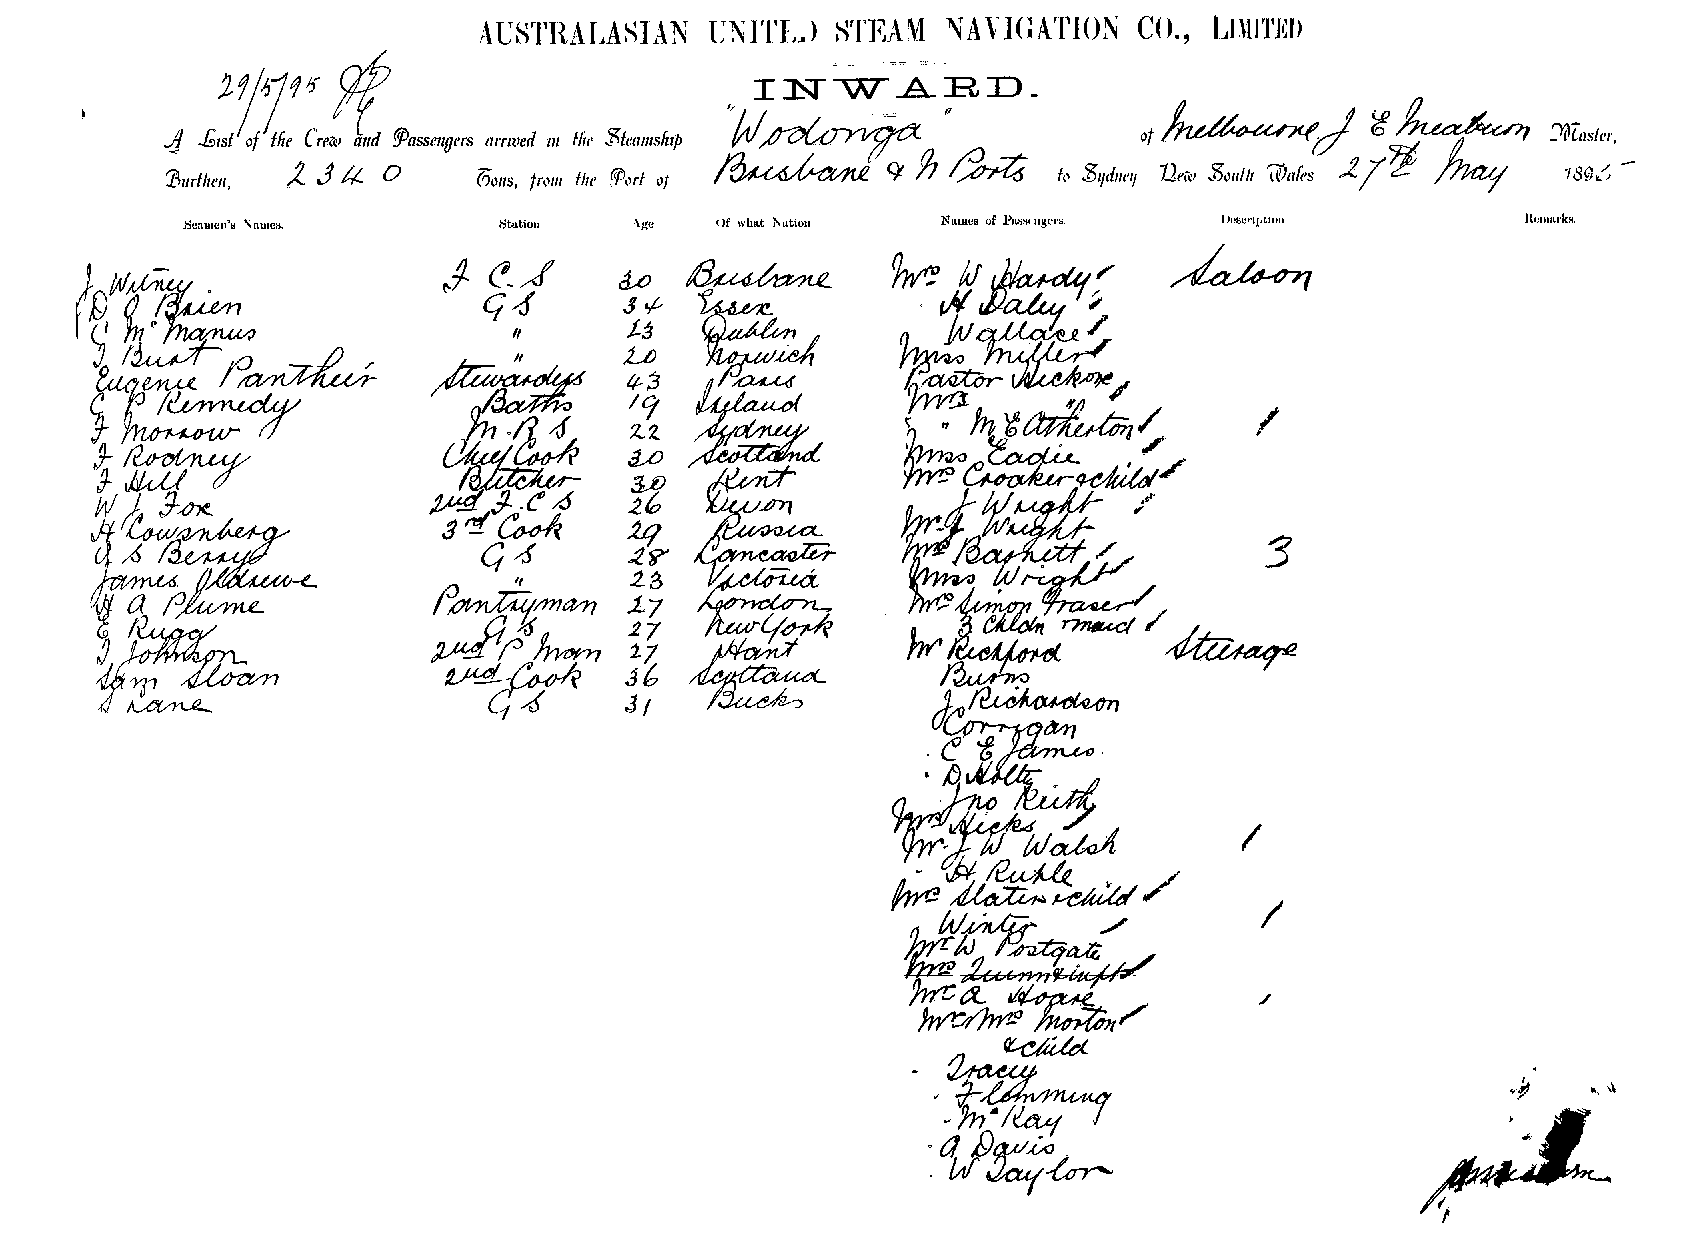 AUSTRALASIAN UNITED STEAM NAVIGATION CO., LIMITED
29/5/95
INWARD.
A List of the Crew and Passengers arrived in the Steamship "Wodonga" of Melbourne J E Meaburn Master,
Burthen, 2340 Tons, from the Port of Brisbane & N Ports to Sydney New South Wales 27th May 1895
Seamen's Names. Station Age Of what Nation Names of Passengers. Description Remarks.
J Witney F C S 30 Brisbane Mrs W Hardy Saloon
D O Brien G S 34 Essex H Daley
C McManus " 23 Dublin Wallace
T Burt " 20 Norwich Miss Miller
Eugenie Stewardess 43 Paris Pastor Hickox
C P Kennedy Baths 19 Ireland Mrs "
F Morrow M.R S 22 Sydney " M E Atherton 1
F Rodney Chief Cook 30 Scotland Miss Eadie
F Hill Butcher 30 Kent Mrs Croaker & child
W J Fox 2nd F.C S 26 Devon J Wright
H Cowsnberg 3rd Cook 29 Russia Mr J Wright
G S Berry G S 28 Lancaster Mrs Barnett 3
James " 23 Victoria Miss Wright
H A Plume Pantryman 27 London Mrs Simon Fraser
E Rugg G S 27 New York 3 Chldn & maid
T Johnson 2nd P Man 27 Hant Mr Richford Steerage
Sam Sloan 2nd Cook 36 Scotland Burns
S Lane G S 31 Bucks J Richardson
Corrigan
C E James
D Holtz
Jno Keith
Mrs Hicks
Mr J W Walsh 1
H Ruhle
Mrs Slater & child
Winter 1
Mr W Postgate
Mrs Quinn & inft
Mr A Hoare
Mr & Mrs Morton
& child
Tracey
Flemming
McKay
A Davis
W Taylor